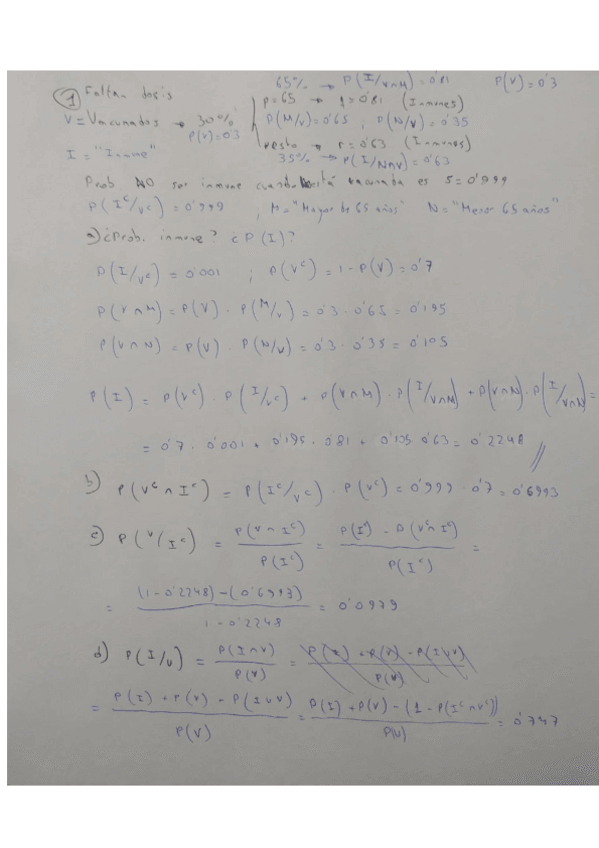 65% → P(I/V∩M) = 0'81 P(V) = 0'3
① Faltan dosis
p = 65 → q = 0'81 (Inmunes)
V = Vacunados → 30% P(M/V) = 0'65 ; P(N/V) = 0'35
P(V) = 0'3
resto → r = 0'63 (Inmunes)
I = "Inmune" 35% → P(I/N∩V) = 0'63
Prob. NO ser inmune cuando está vacunada es s = 0'999
P(I^c/V^c) = 0'999 , M = "Mayor de 65 años" N = "Menor 65 años"
a) ¿Prob. inmune? ¿P(I)?
P(I/V^c) = 0'001 ; P(V^c) = 1 - P(V) = 0'7
P(V∩M) = P(V) · P(M/V) = 0'3 · 0'65 = 0'195
P(V∩N) = P(V) · P(N/V) = 0'3 · 0'35 = 0'105
P(I) = P(V^c) · P(I/V^c) + P(V∩M) · P(I/V∩M) + P(V∩N) · P(I/V∩N) =
= 0'7 · 0'001 + 0'195 · 0'81 + 0'105 · 0'63 = 0'2248 //
b) P(V^c ∩ I^c) = P(I^c/V^c) · P(V^c) = 0'999 · 0'7 = 0'6993
c) P(V/I^c) = P(V∩I^c) / P(I^c) = P(I^c) - P(V^c∩I^c) / P(I^c) =
= (1-0'2248)-(0'6993) / 1-0'2248 = 0'0979
d) P(I/V) = P(I∩V) / P(V) = P(I) + P(V) - P(I∪V) / P(V)
= P(I) + P(V) - P(I∪V) / P(V) = P(I) + P(V) - (1 - P(I^c∩V^c)) / P(V) = 0'747